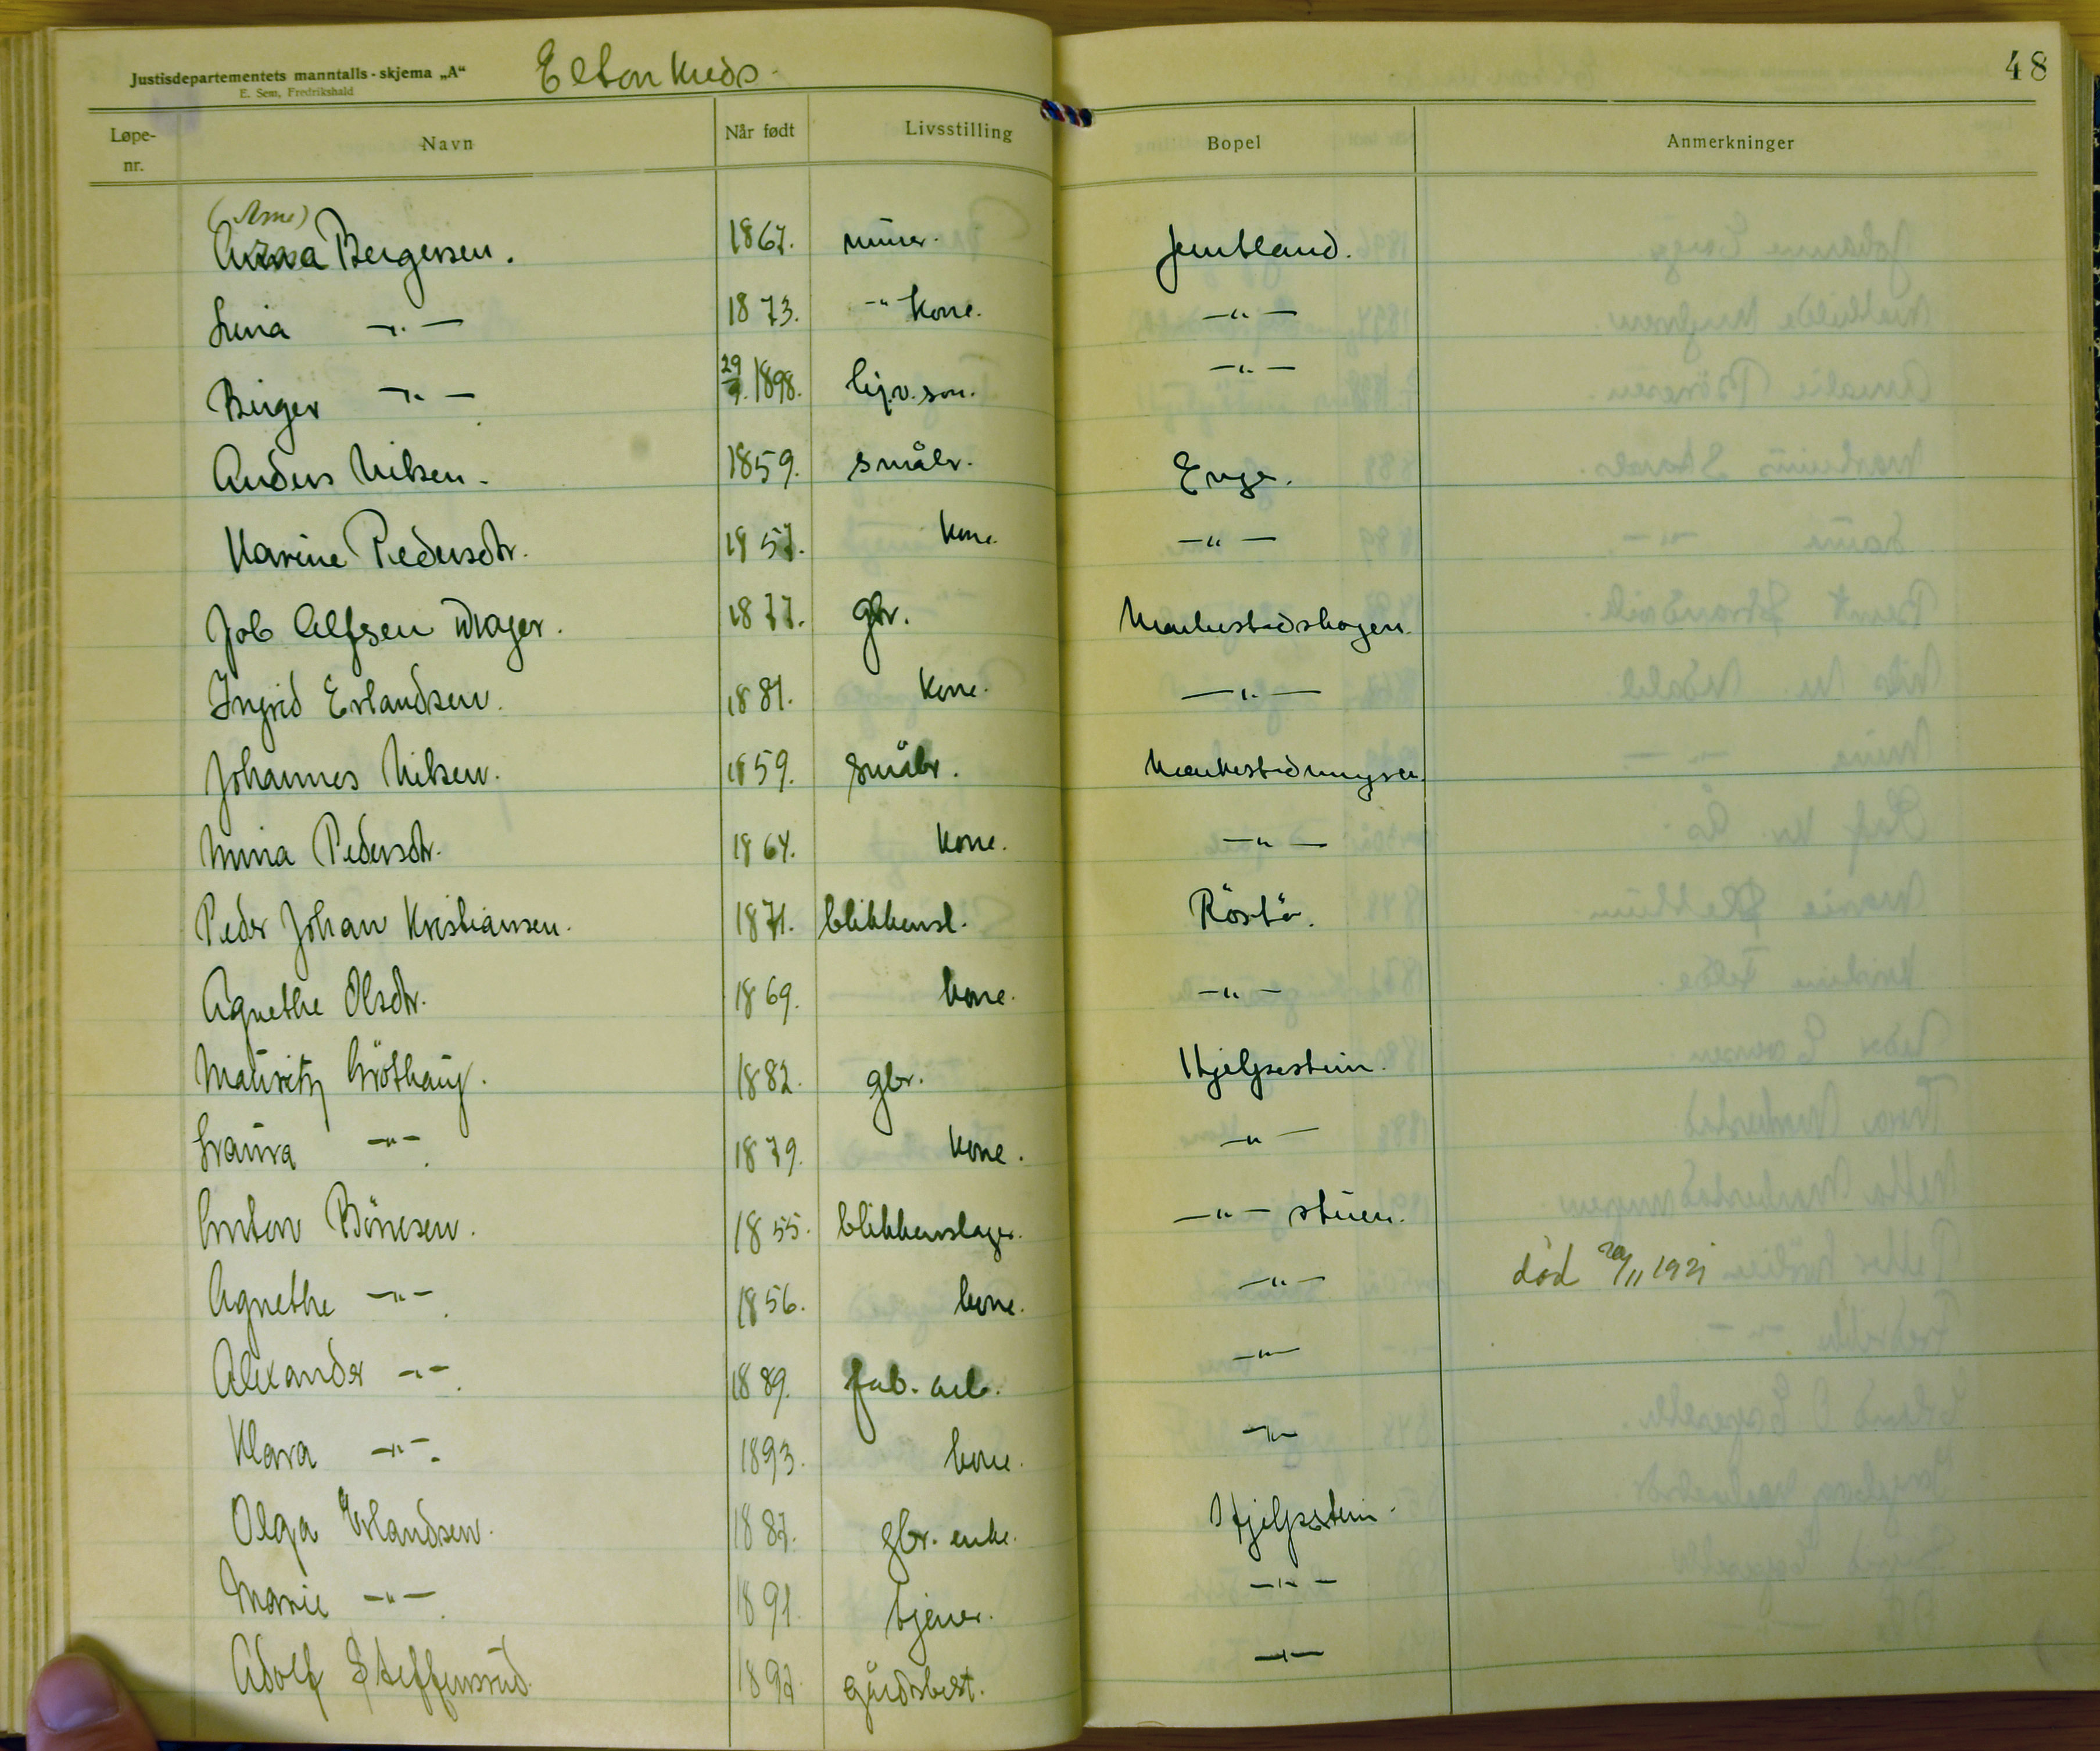 Justisdepartementets manntalls-skjema „A“ Elton kreds. 48
E. Sem, Fredrikshald
Løpe-nr. Navn Når født Livsstilling Bopel Anmerkninger
(Arne)
Anna Bergersen. 1867. murer. Jemtland.
Lina —"— 1873. —" kone. —"—
Birger —"— 29/9. 1898. hj.v. søn. —"—
Anders Nilsen. 1859. småbr. Enge.
Karine Pedersdtr. 1857. kone. —"—
Job Alfsen Wager. 1877. gbr. Markestadshagen.
Ingrid Erlandsen. 1881. kone. —"—
Johannes Nilsen. 1859. småbr. Markestadmyren
Mina Pedersdtr. 1864. kone. —"—
Peder Johan Kristiansen. 1871. blikkensl. Röstö.
Agnethe Olsdtr. 1869. kone. —"—
Mauritz Gröthaug. 1882. gbr. Hjelpestein.
Laura —"— 1879. kone. —"—
Anton Börresen. 1855. blikkenslager. —"— stuen.
Agnethe —"— 1856. kone. —"— död 20/11 1921
Alexander —"— 1889. fab. arb. —"—
Klara —"— 1893. kone. —"—
Olga Erlandsen. 1887. gbr. enke. Hjelpestein.
Marie —"— 1891. tjener. —"—
Adolf Steffensrud. 1897. gårdsbest. —"—